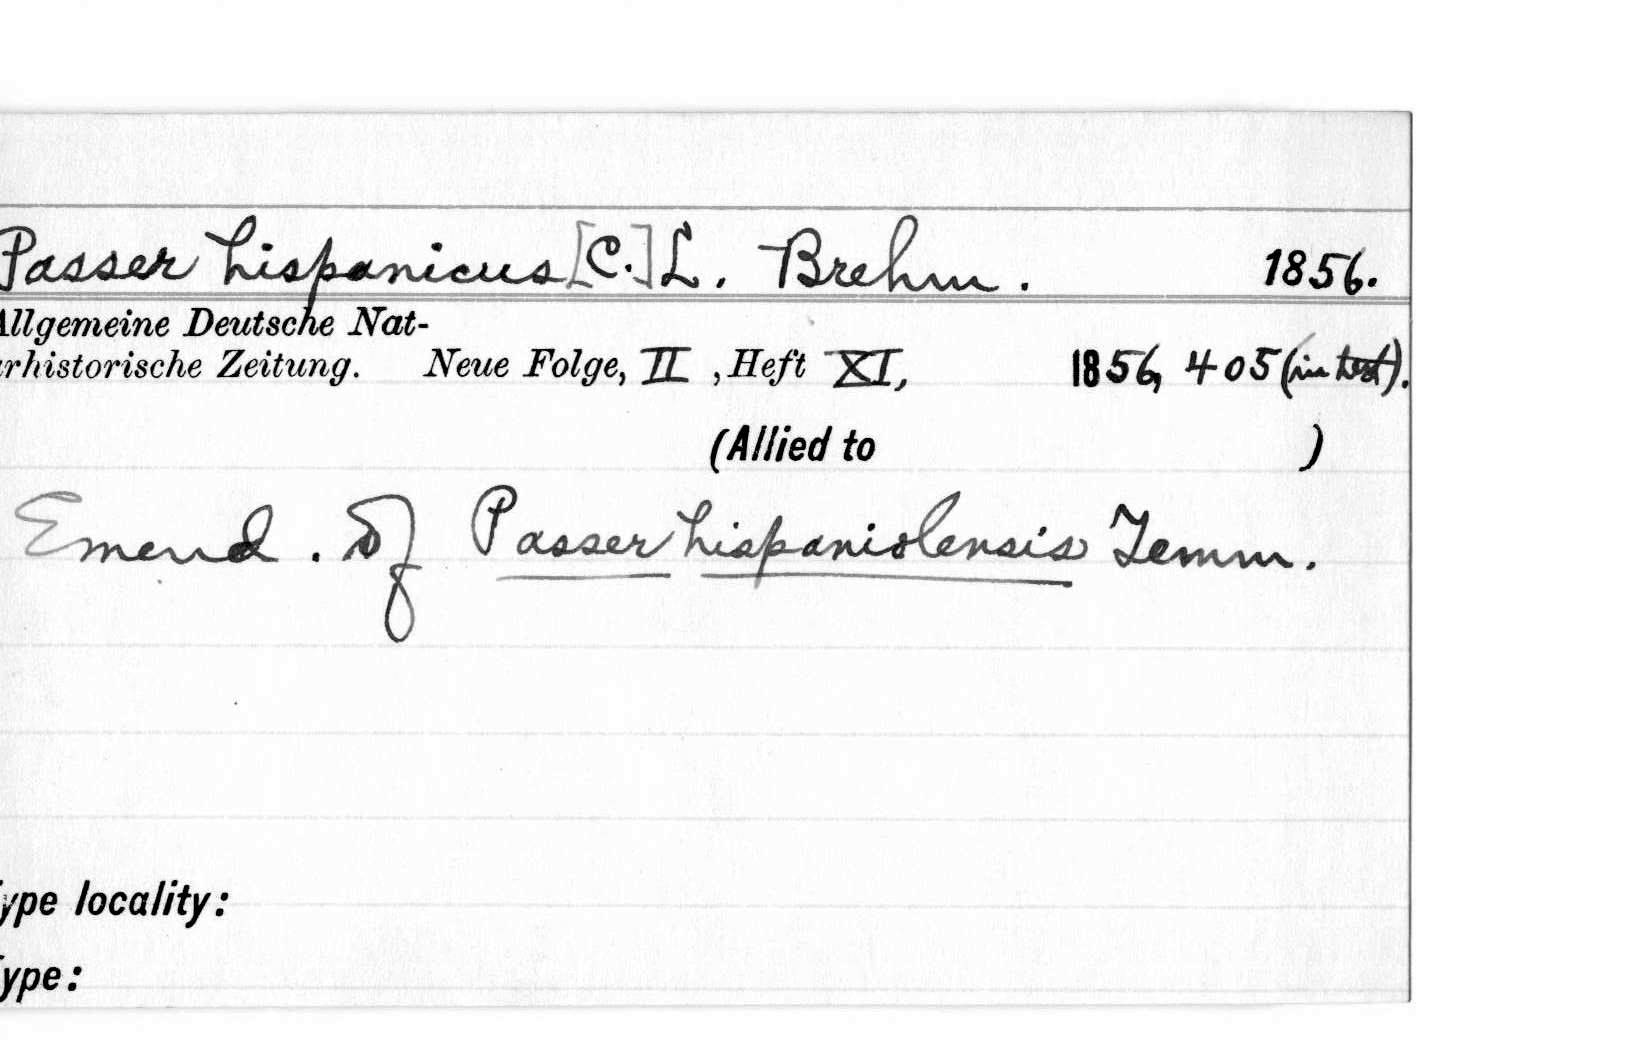 Passer hispanicus [C.] L. Brehm. 1856.
Allgemeine Deutsche Nat-
urhistorische Zeitung. Neue Folge, II, Heft XI, 1856, 405 (in text).
(Allied to )
Emend. of Passer hispaniolensis Temm.
Type locality:
Type: